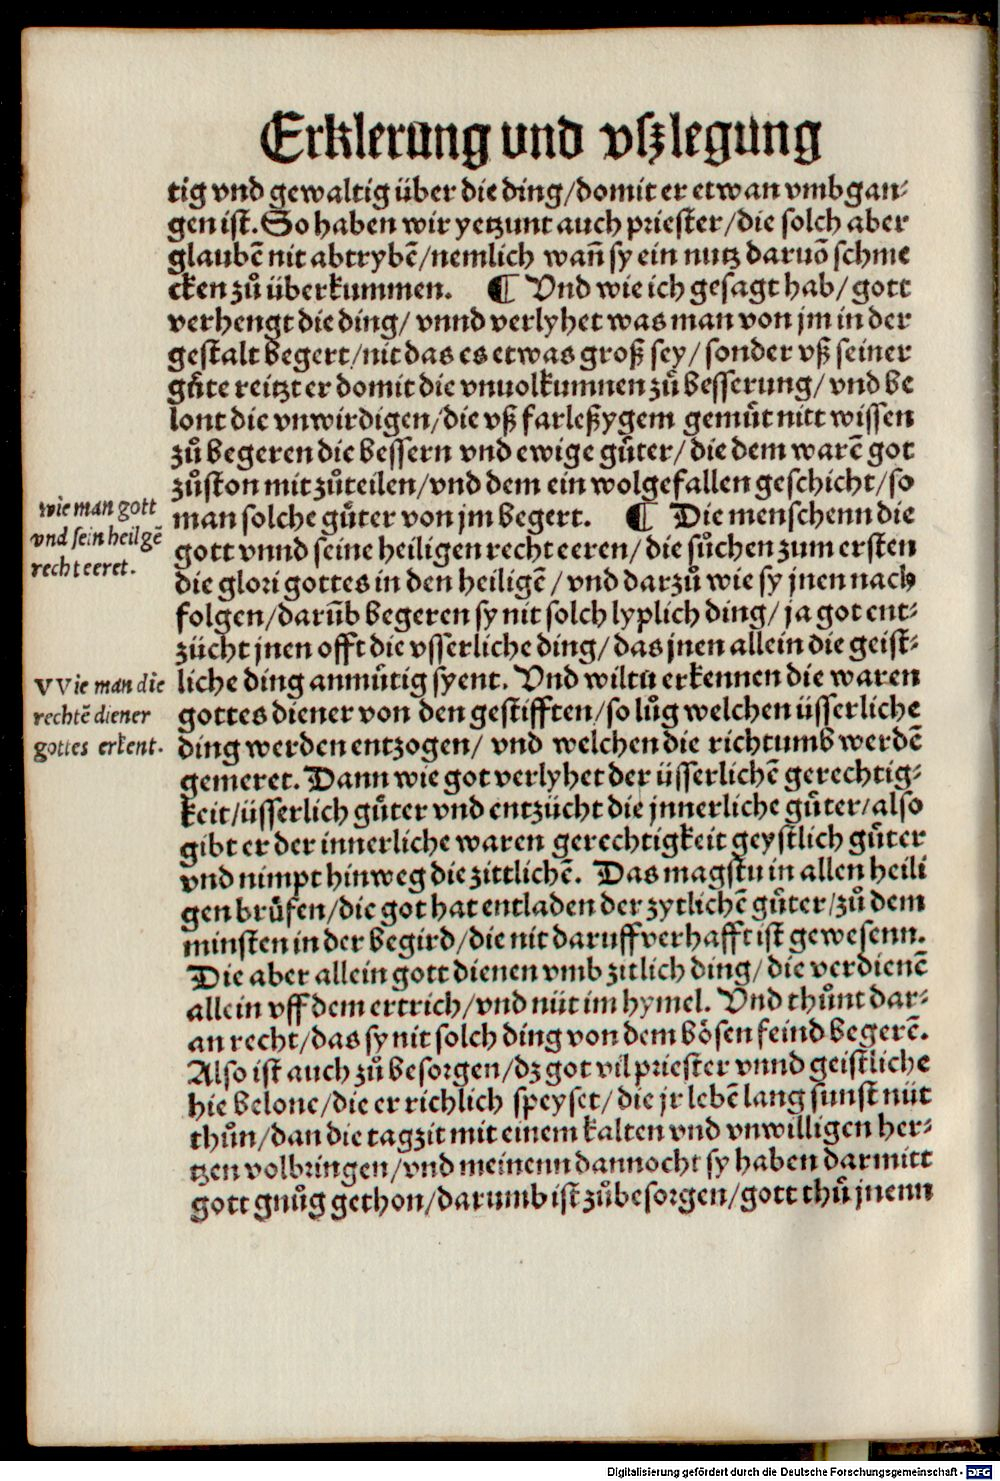 Erklerung und vſzlegung
tig vnd gewaltig über die ding/domit er etwan vmbgan⸗
gen iſt. So haben wir yetzunt auch prieſter/die ſolch aber
glaubẽ nit abtrybẽ/nemlich wañ ſy ein nutz daruõ ſchme
cken zů überkummen. ¶ Vnd wie ich geſagt hab/ gott
verhengt die ding/ vnnd verlyhet was man von jm in der
geſtalt begert/nit das es etwas groß ſey/ ſonder vß ſeiner
gůte reitzt er domit die vnuolkumnen zů beſſerung/ vnd be
lont die vnwirdigen/die vß farleßygem gemůt nitt wiſſen
zů begeren die beſſern vnd ewige gůter/ die dem warẽ got
zůſton mit zůteilen/vnd dem ein wolgefallen geſchicht/ſo
man ſolche gůter von jm begert. ¶ Die menſchenn die
gott vnnd ſeine heiligen recht eeren/ die ſůchen zum erſten
die glori gottes in den heiligẽ / vnd darzů wie ſy jnen nach
folgen/darũb begeren ſy nit ſolch lyplich ding/ ja got ent⸗
zücht jnen offt die vſſerliche ding/ das jnen allein die geiſt⸗
liche ding anmůtig ſyent. Vnd wiltu erkennen die waren
gottes diener von den geſtifften/ſo lůg welchen üſſerliche
ding werden entzogen/ vnd welchen die richtumb werdẽ
gemeret. Dann wie got verlyhet der üſſerlichẽ gerechtig⸗
keit/üſſerlich gůter vnd entzücht die jnnerliche gůter/alſo
gibt er der innerliche waren gerechtigkeit geyſtlich gůter
vnd nimpt hinweg die zittlichẽ. Das magſtu in allen heili
gen brůfen/die got hat entladen der zytlichẽ gůter/zů dem
minſten in der begird/die nit daruff verhafft iſt geweſenn.
Die aber allein gott dienen vmb zitlich ding/ die verdienẽ
allein vff dem ertrich/vnd nüt im hymel. Vnd thůnt dar⸗
an recht/das ſy nit ſolch ding von dem böſen feind begerẽ.
Alſo iſt auch zů beſorgen/dz got vil prieſter vnnd geiſtliche
hie belone/die er richlich ſpeyſet/die jr lebẽ lang ſunſt nüt
thůn/dan die tagzit mit einem kalten vnd vnwilligen her⸗
tzen volbringen/vnd meinenn dannocht ſy haben darmitt
gott gnůg gethon/darumb iſt zůbeſorgen/gott thů jnenn
wie man gott
vnd ſein heilgẽ
recht eeret.
VVie man die
rechtẽ diener
gottes erkent.
Digitalisierung gefördert durch die Deutsche Forschungsgemeinschaft - DFG